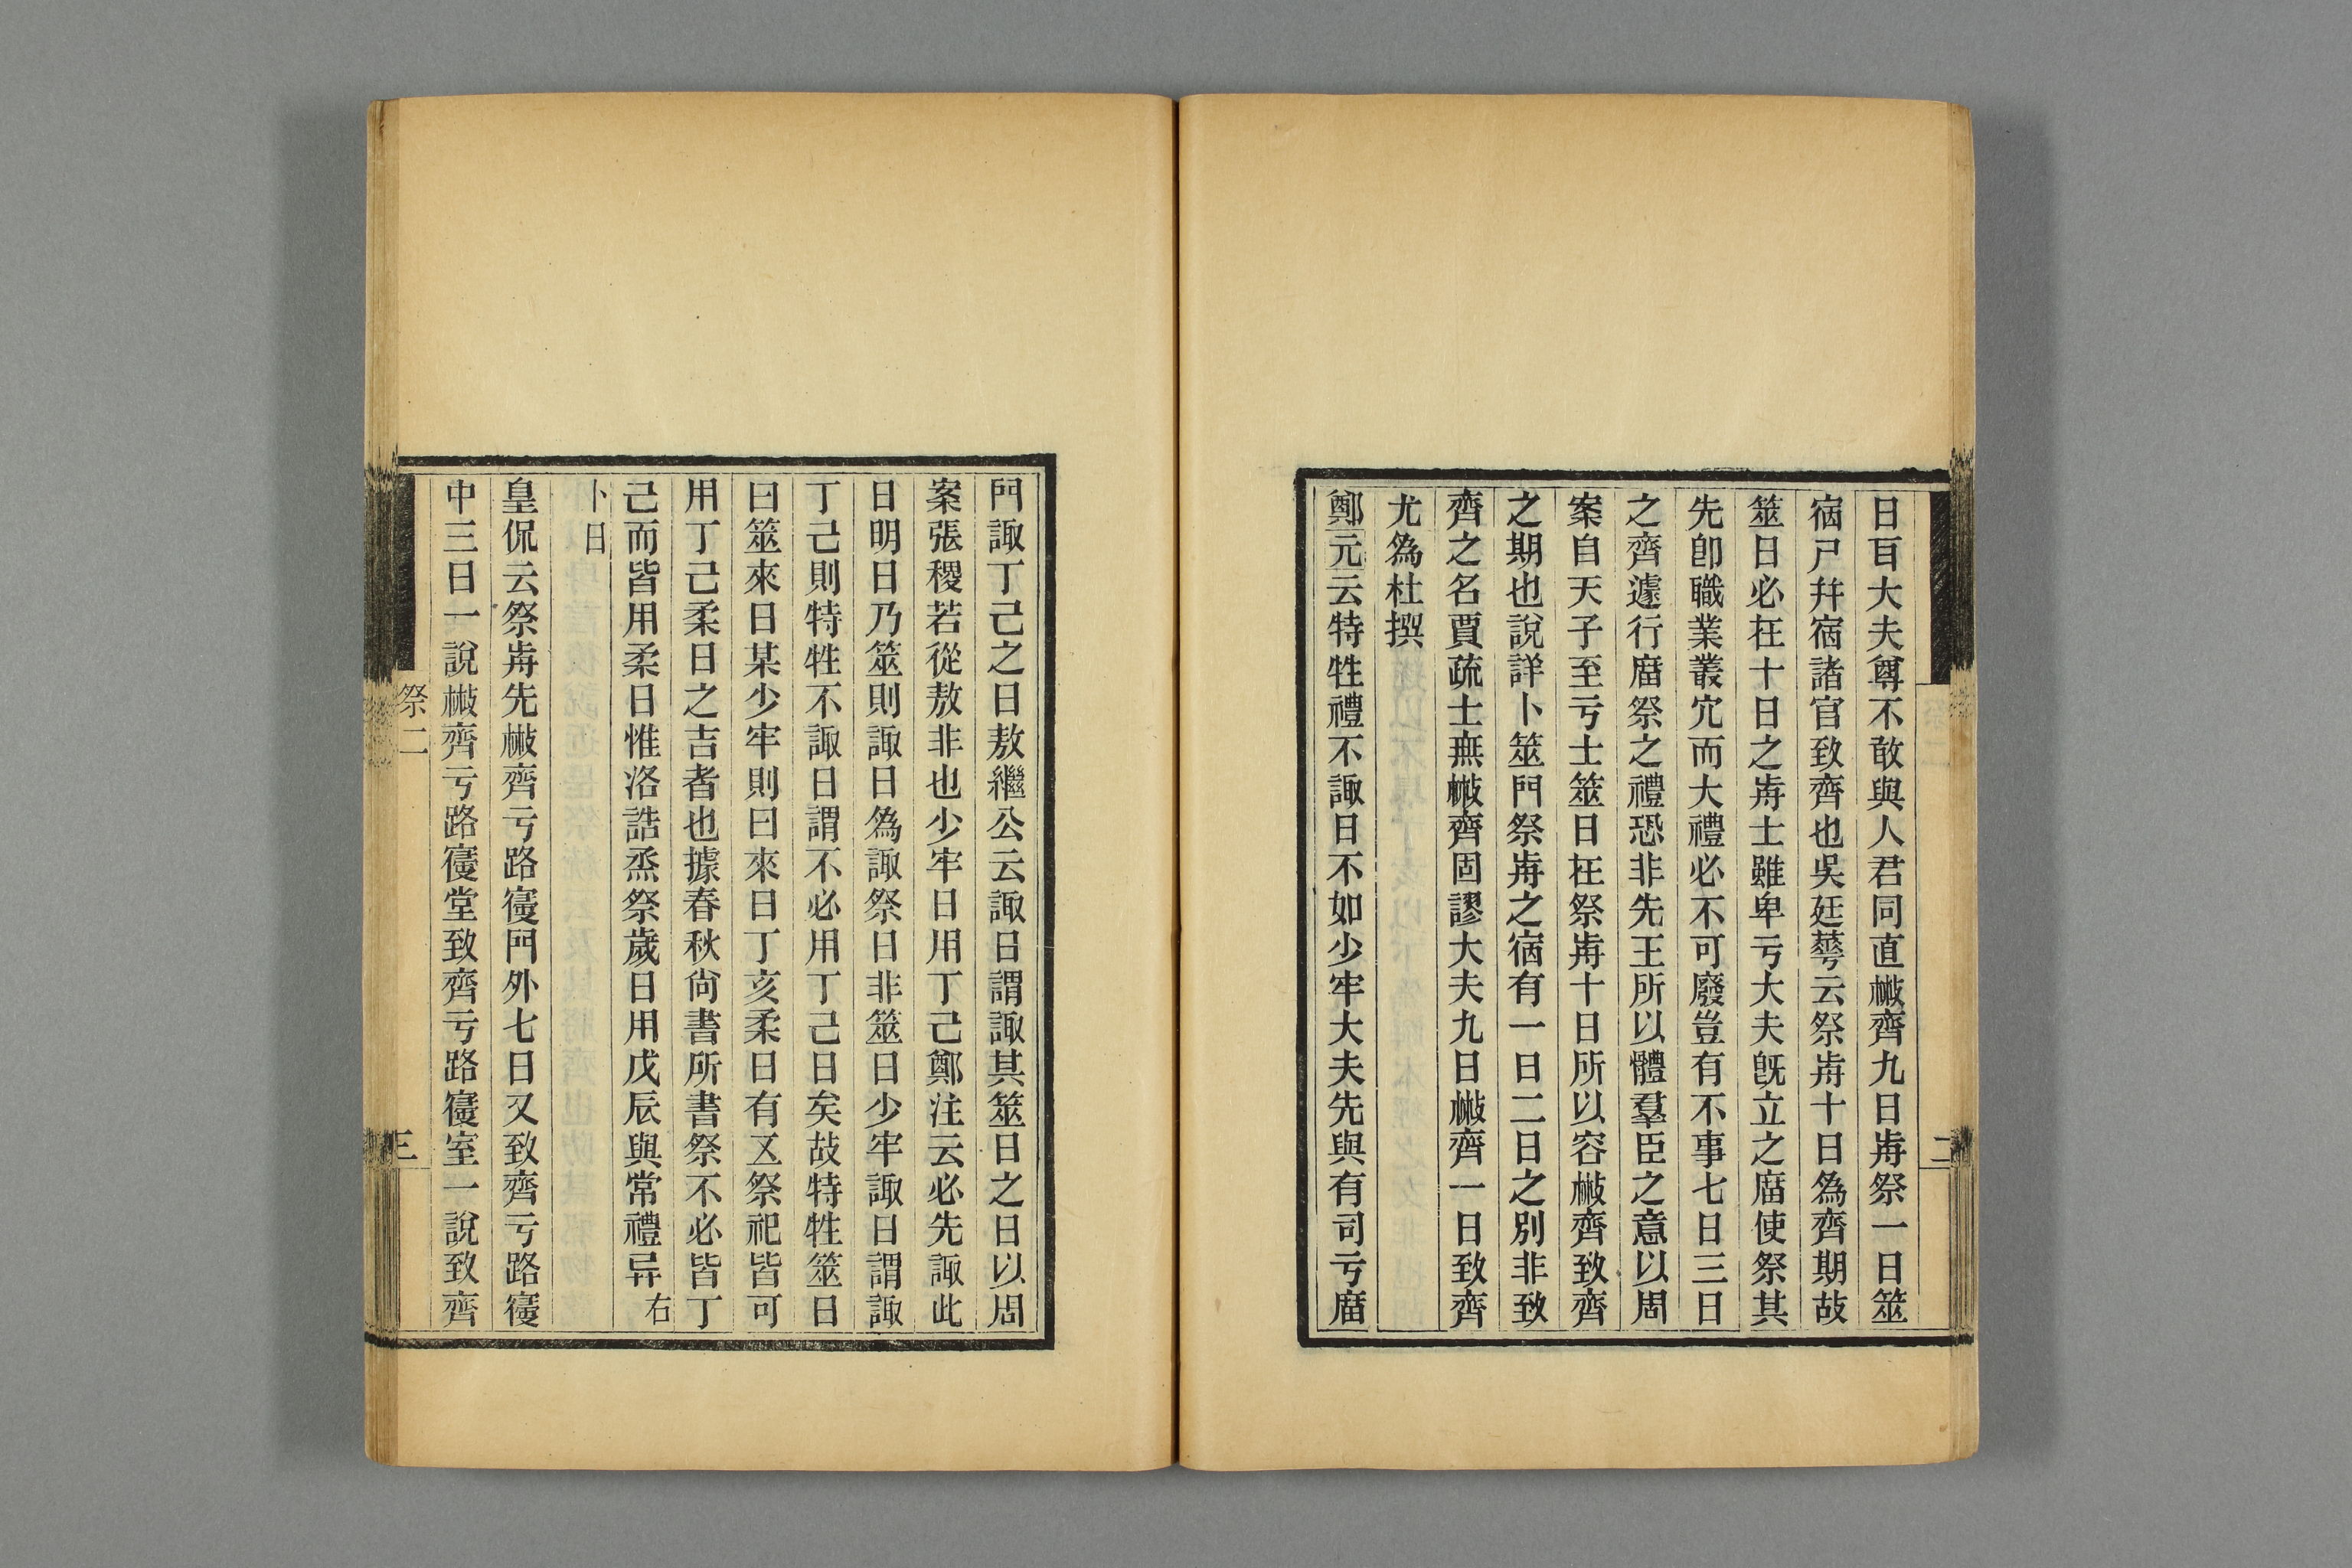 日百大夫尊不敢與人君同直㪚齊九日歬祭一日筮
宿尸幷宿諸官致齊也吳廷蕚云祭歬十日為齊期故
筮日必在十日之歬士雖卑亏大夫旣立之庿使祭其
先卽職業叢宂而大禮必不可廢豈有不事七日三日
之齊遽行庿祭之禮恐非先王所以體羣臣之意以周
案自天子至亏士筮日在祭歬十日所以容㪚齊致齊
之期也說詳卜筮門祭歬之宿有一日二日之別非致
齊之名賈疏士無㪚齊固謬大夫九日㪚齊一日致齊
尤為杜撰
鄭元云特牲禮不諏日不如少牢大夫先與有司亏庿
二
門諏丁己之日敖繼公云諏日謂諏其筮日之日以周
案張稷若從敖非也少牢日用丁己鄭注云必先諏此
日明日乃筮則諏日為諏祭日非筮日少牢諏日謂諏
丁己則特牲不諏日謂不必用丁己日矣故特牲筮日
曰筮來日某少牢則曰來日丁亥柔日有㐅祭祀皆可
用丁己柔日之吉者也據春秋尙書所書祭不必皆丁
己而皆用柔日惟洛誥烝祭歲日用戊辰與常禮异 右
卜日
皇侃云祭歬先㪚齊亏路寑門外七日又致齊亏路寑
中三日一說㪚齊亏路寑堂致齊亏路寑室一說致齊
祭二
三